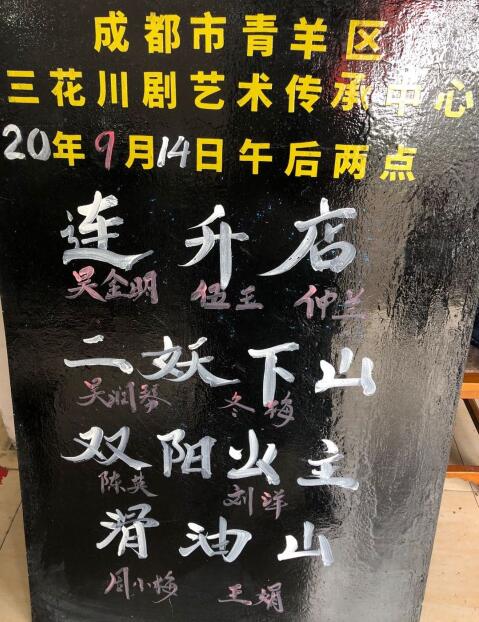 成都市青羊区
三花川剧艺术传承中心
20年9月14日午后两点
连升店
吴金明 伍王 仲兰
二妖下山
吴润琴 冬梅
双阳公主
陈英 刘洋
滑油山
周小梅 王娟